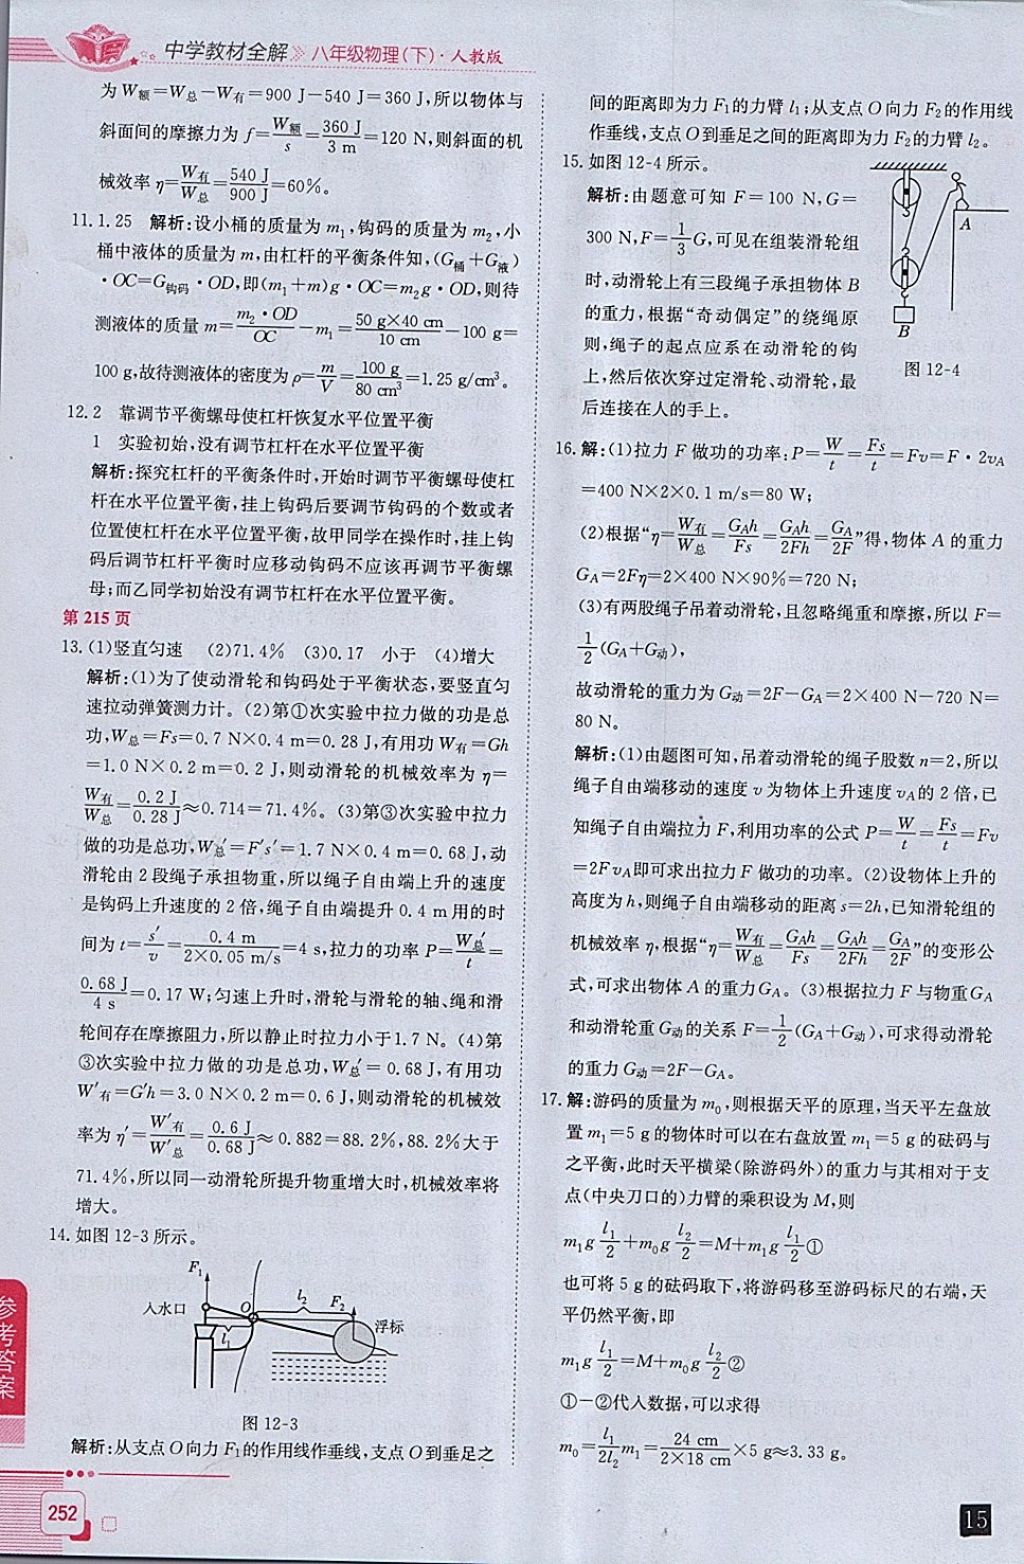 中学教材全解 八年级物理(下)·人教版
为 W额=W总-W有=900 J-540 J=360 J,所以物体与
斜面间的摩擦力为 f=W额/s=360 J/3 m=120 N,则斜面的机
械效率 η=W有/W总=540 J/900 J=60%。
11. 1.25 解析:设小桶的质量为 m₁,钩码的质量为 m₂,小
桶中液体的质量为 m,由杠杆的平衡条件知,(G桶+G液)
·OC=G钩码·OD,即(m₁+m)g·OC=m₂g·OD,则待
测液体的质量 m=m₂·OD/OC-m₁=50 g×40 cm/10 cm-100 g=
100 g,故待测液体的密度为 ρ=m/V=100 g/80 cm³=1.25 g/cm³。
12. 2 靠调节平衡螺母使杠杆恢复水平位置平衡
1 实验初始,没有调节杠杆在水平位置平衡
解析:探究杠杆的平衡条件时,开始时调节平衡螺母使杠
杆在水平位置平衡,挂上钩码后要调节钩码的个数或者
位置使杠杆在水平位置平衡,故甲同学在操作时,挂上钩
码后调节杠杆平衡时应移动钩码不应该再调节平衡螺
母;而乙同学初始没有调节杠杆在水平位置平衡。
第 215 页
13. (1)竖直匀速 (2)71.4% (3)0.17 小于 (4)增大
解析:(1)为了使动滑轮和钩码处于平衡状态,要竖直匀
速拉动弹簧测力计。(2)第①次实验中拉力做的功是总
功,W总=Fs=0.7 N×0.4 m=0.28 J,有用功 W有=Gh
=1.0 N×0.2 m=0.2 J,则动滑轮的机械效率为 η=
W有/W总=0.2 J/0.28 J≈0.714=71.4%。(3)第③次实验中拉力
做的功是总功,W总′=F′s′=1.7 N×0.4 m=0.68 J,动
滑轮由 2 段绳子承担物重,所以绳子自由端上升的速度
是钩码上升速度的 2 倍,绳子自由端提升 0.4 m 用的时
间为 t=s′/v=0.4 m/2×0.05 m/s=4 s,拉力的功率 P=W总′/t=
0.68 J/4 s=0.17 W;匀速上升时,滑轮与滑轮的轴、绳和滑
轮间存在摩擦阻力,所以静止时拉力小于1.7 N。(4)第
③次实验中拉力做的功是总功,W总′=0.68 J,有用功
W′有=G′h=3.0 N×0.2 m=0.6 J,则动滑轮的机械效
率为 η′=W′有/W′总=0.6 J/0.68 J≈0.882=88.2%,88.2%大于
71.4%,所以同一动滑轮所提升物重增大时,机械效率将
增大。
14. 如图 12-3 所示。
F₁
入水口
O
l₁
l₂
F₂
浮标
图 12-3
解析:从支点 O 向力 F₁的作用线作垂线,支点 O 到垂足之
间的距离即为力 F₁的力臂 l₁;从支点 O 向力 F₂的作用线
作垂线,支点 O 到垂足之间的距离即为力 F₂的力臂 l₂。
15. 如图 12-4 所示。
解析:由题意可知 F=100 N,G=
300 N,F=1/3G,可见在组装滑轮组
时,动滑轮上有三段绳子承担物体 B
的重力,根据“奇动偶定”的绕绳原
则,绳子的起点应系在动滑轮的钩
上,然后依次穿过定滑轮、动滑轮,最
后连接在人的手上。
A
B
图 12-4
16. 解:(1)拉力 F 做功的功率:P=W/t=Fs/t=Fv=F·2vA
=400 N×2×0.1 m/s=80 W;
(2)根据“η=W有/W总=GAh/Fs=GAh/2Fh=GA/2F”得,物体 A 的重力
GA=2Fη=2×400 N×90%=720 N;
(3)有两股绳子吊着动滑轮,且忽略绳重和摩擦,所以 F=
1/2(GA+G动),
故动滑轮的重力为 G动=2F-GA=2×400 N-720 N=
80 N。
解析:(1)由题图可知,吊着动滑轮的绳子股数 n=2,所以
绳子自由端移动的速度 v 为物体上升速度 vA的 2 倍,已
知绳子自由端拉力 F,利用功率的公式 P=W/t=Fs/t=Fv
=2FvA即可求出拉力 F 做功的功率。(2)设物体上升的
高度为 h,则绳子自由端移动的距离 s=2h,已知滑轮组的
机械效率 η,根据“η=W有/W总=GAh/Fs=GAh/2Fh=GA/2F”的变形公
式,可求出物体 A 的重力GA。(3)根据拉力 F 与物重GA
和动滑轮重 G动的关系 F=1/2(GA+G动),可求得动滑轮
的重力 G动=2F-GA。
17. 解:游码的质量为 m₀,则根据天平的原理,当天平左盘放
置 m₁=5 g 的物体时可以在右盘放置 m₁=5 g 的砝码与
之平衡,此时天平横梁(除游码外)的重力与其相对于支
点(中央刀口的)力臂的乘积设为 M,则
m₁g l₁/2+m₀g l₂/2=M+m₁g l₁/2①
也可将 5 g 的砝码取下,将游码移至游码标尺的右端,天
平仍然平衡,即
m₁g l₁/2=M+m₀g l₂/2②
①-②代入数据,可以求得
m₀=l₁/2l₂ m₁=24 cm/2×18 cm×5 g≈3.33 g。
参考答案
252
15